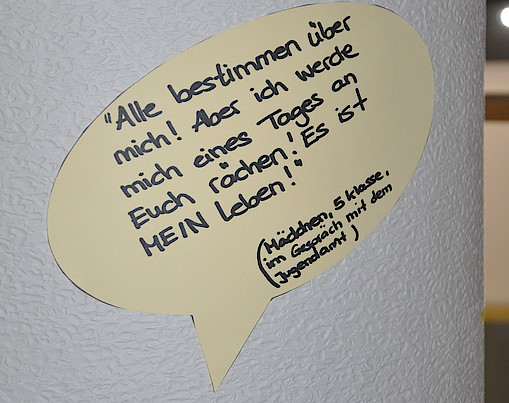 "Alle bestimmen über
mich! Aber ich werde
mich eines Tages an
Euch rächen! Es ist
MEIN Leben!"
(Mädchen, 5 klasse,
im Gespräch mit dem
Jugendamt)